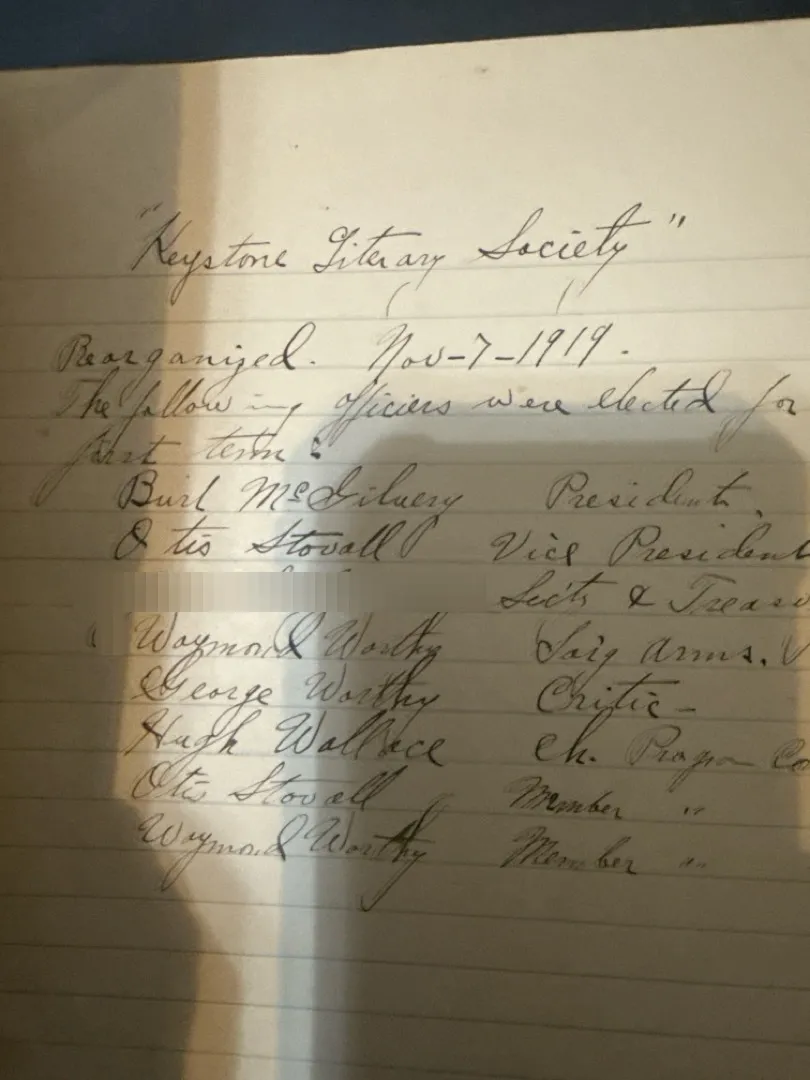 "Keystone Literary Society"
Reorganized. Nov-7-1919.
The following officiers were elected for
first term:
Burl McGilvery President.
Otis Stovall Vice President
Sect's & Treasu
Waymond Worthy Sarg Arms.
George Worthy Critic-
Hugh Wallace Ch. Program Co
Otis Stovall Member "
Waymond Worthy Member "